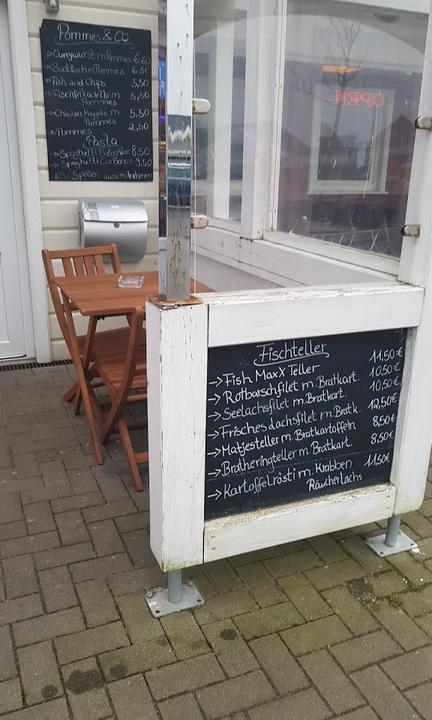 Pommes & Co
→ Currywurst m Pommes 6,60
→ Backfisch m Pommes 6,50
→ Fish and Chips 5,50
m
Pommes 5,50
→ Chicken Nuggets m
Pommes 5,50
→ Pommes 2,60
Pasta
→ Spaghetti Bolognese 8,50
→ Spaghetti Carbonara 9,50
Alle Speisen zum mitnehmen
OPEN
Fischteller
→ Fish Maxx Teller 11.50€
→ Rotbarschfilet m. Bratkart. 10.50€
→ Seelachsfilet m. Bratkart. 10,50€
→ Frisches dachsfilet m. Bratk. 12,50€
→ Matjesteller m. Bratkartoffeln 8,50€
→ Bratheringteller m. Bratkart. 8.50€
→ Kartoffelrösti m. Krabben 11,50€
Räucherlachs